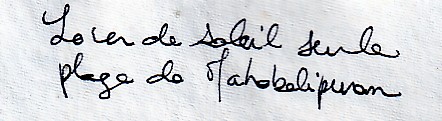 Lever de soleil sur la
plage de Mahabalipuram